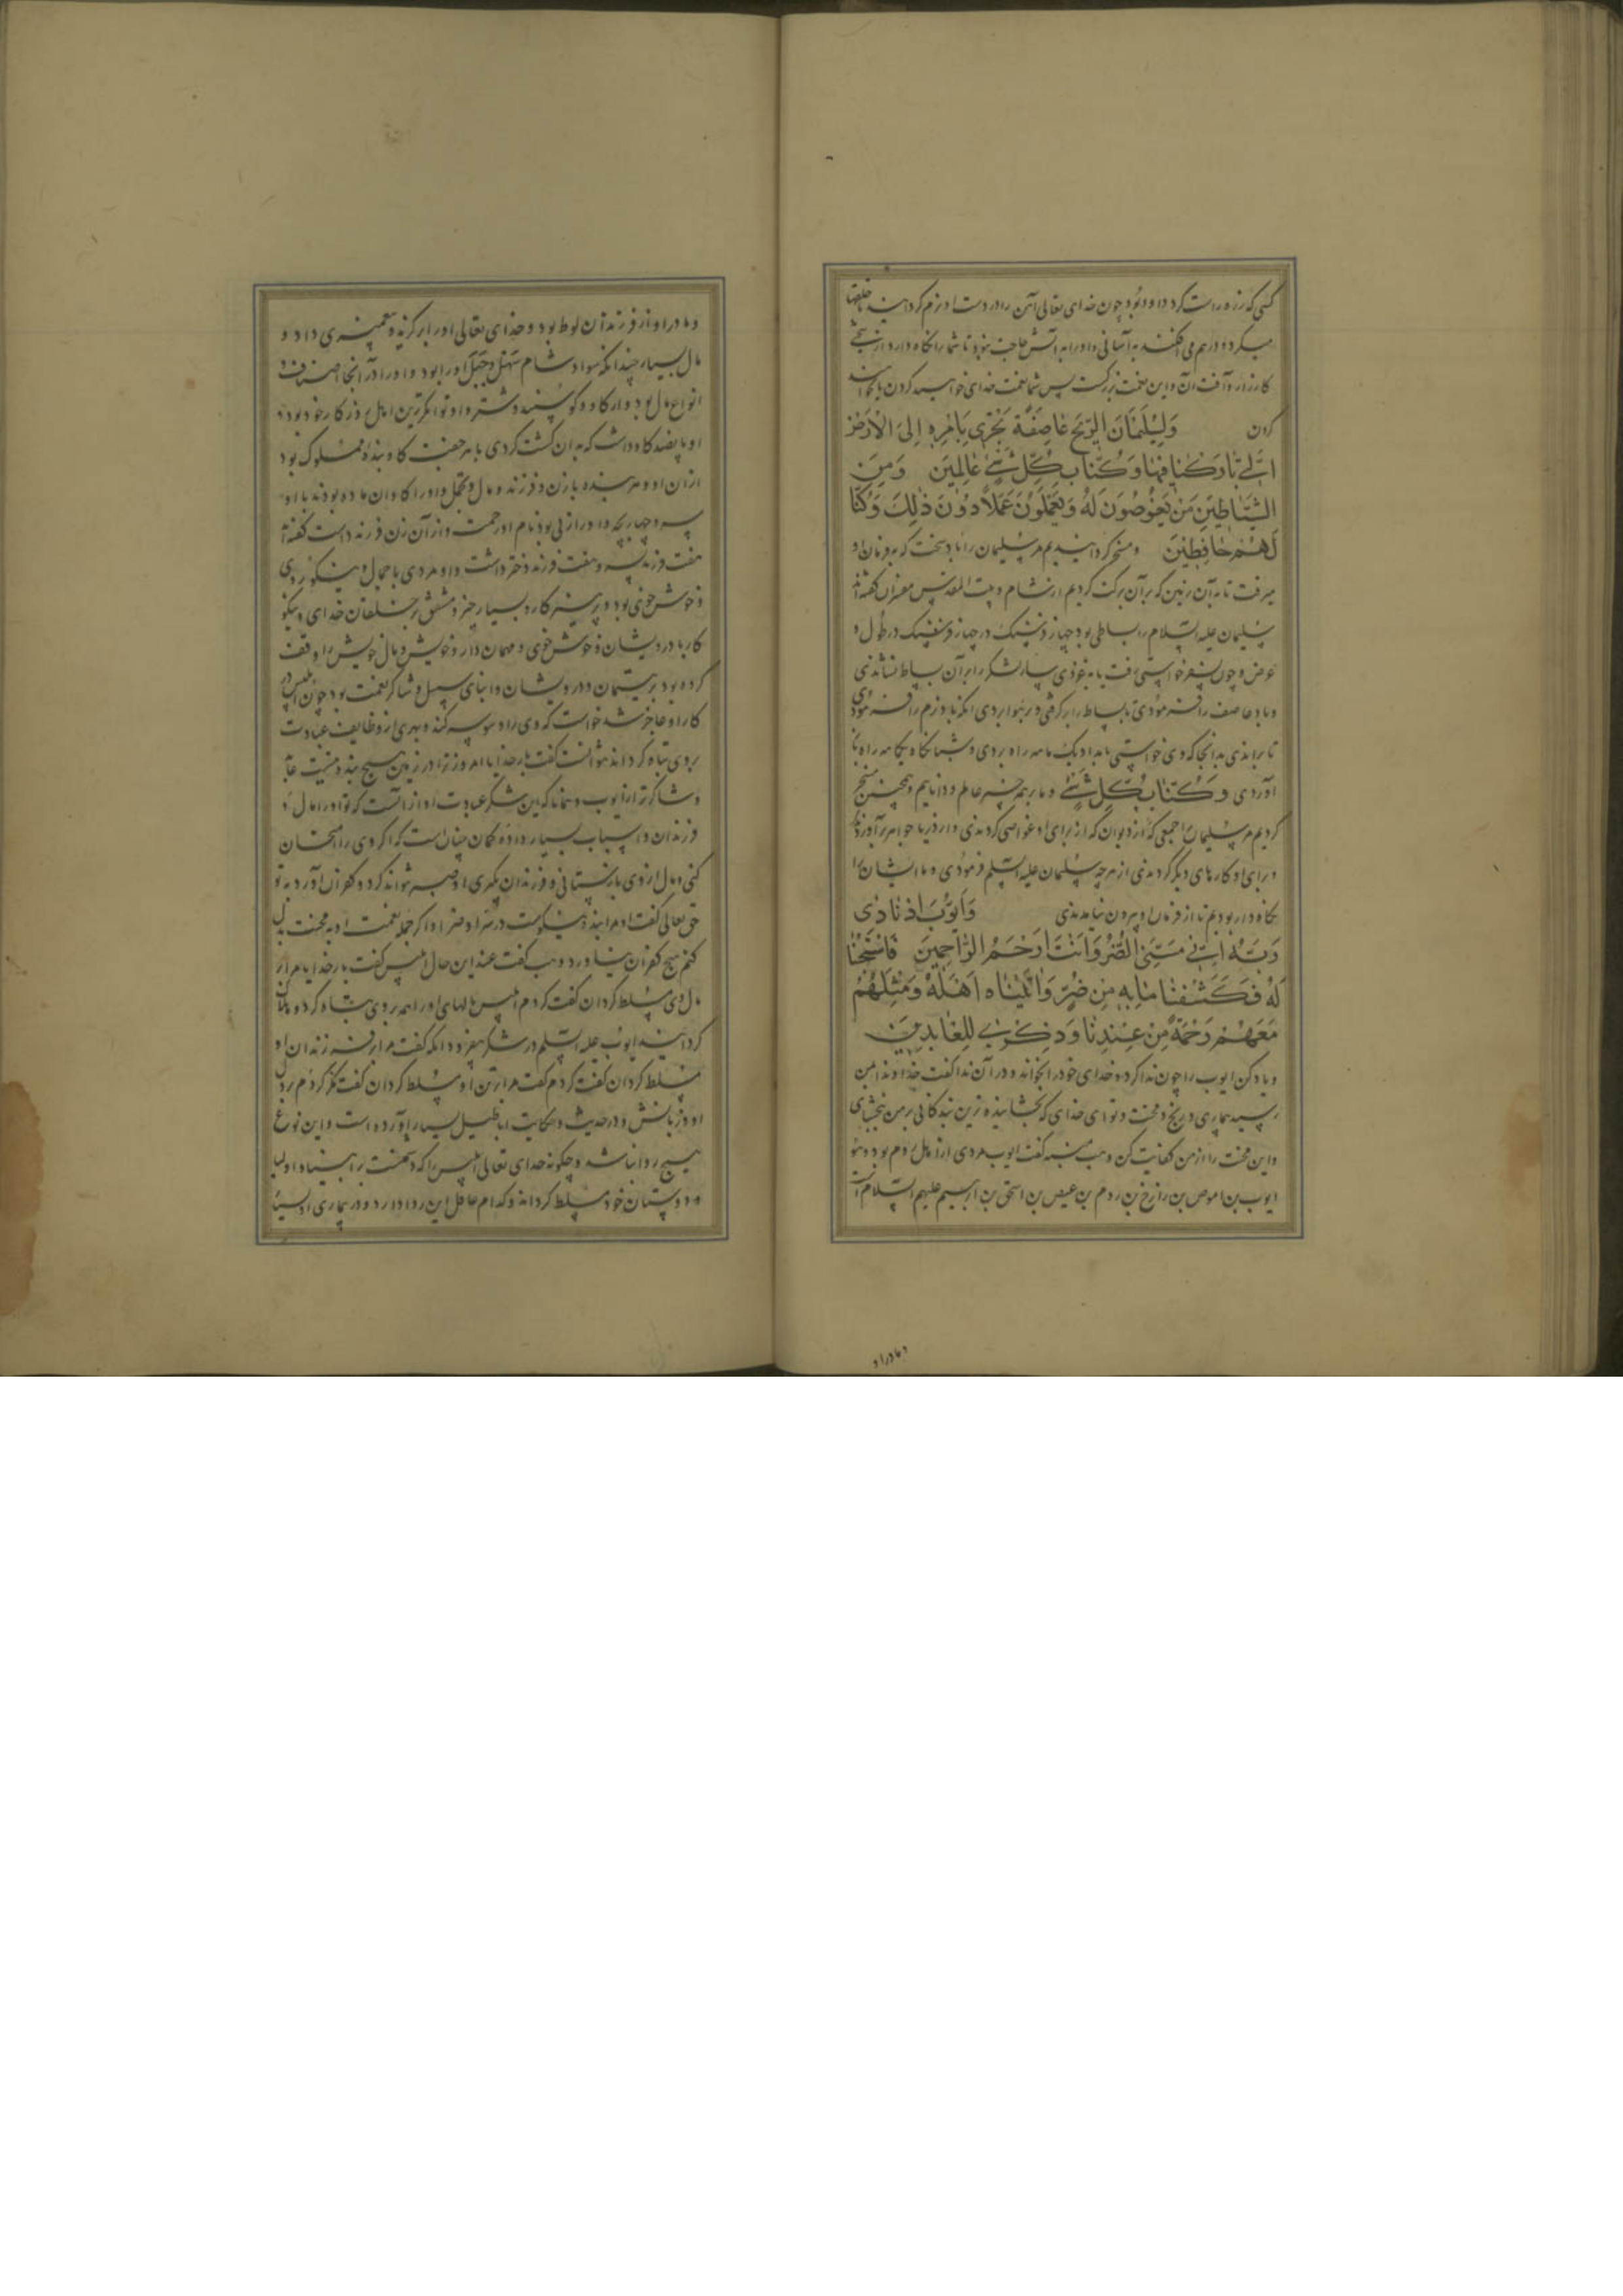 کسی که زره راست کرد داود بود چون خدای تعالی آهن را در دست او نرم گردانید حلقها
میکرد و درهم می افکند به آسانی و او را به آتش حاجت نبود تا شما را نگاه دارد از سختی
کارزار و آفت آن و این نعمت بزرگست پس شما نعمت خدای خواهید کردن یا نخواهید
کردن وَلِسُلَيْمَانَ الرِّيحَ عَاصِفَةً تَجْرِي بِأَمْرِهِ إِلَى الْأَرْضِ
الَّتِي بَارَكْنَا فِيهَا وَكُنَّا بِكُلِّ شَيْءٍ عَالِمِينَ وَمِنَ
الشَّيَاطِينِ مَنْ يَغُوصُونَ لَهُ وَيَعْمَلُونَ عَمَلًا دُونَ ذَلِكَ وَكُنَّا
لَهُمْ حَافِظِينَ و مسخر گردانیدیم مر سلیمان را باد سخت که به فرمان او
میرفت تا به آن زمین که بر آن برکت کردیم از شام و بیت المقدس مفسران گفته اند
سلیمان علیه السلام را بساطی بود چهار فرسنگ در چهار فرسنگ در طول و
عرض و چون بسفر خواستی رفت یا به غزوی سپار لشکر را بر آن بساط نشاندی
و باد عاصف را فرمودی تا بساط را برگرفتی و در هوا بردی آنگه باد نرم را فرمودی
تا براندی بدانجا که وی خواستی بامداد یک ماهه راه بردی و شبانگاه یکماهه راه باز
آوردی وَكُنَّا بِكُلِّ شَيْءٍ و ما بهمه چیز عالم و داناییم و همچنین مسخر
کردیم مر سلیمان را جمعی که از دیوان که از برای او غواصی کردندی و از دریا جواهر برآوردندی
و برای او کارهای دیگر کردندی از هر چه سلیمان علیه السلم فرمودی و ما ایشان را
نگاه دار بودیم تا از فرمان او بیرون نیامدندی وَأَيُّوبَ إِذْ نَادَى
رَبَّهُ أَنِّي مَسَّنِيَ الضُّرُّ وَأَنْتَ أَرْحَمُ الرَّاحِمِينَ فَاسْتَجَبْنَا
لَهُ فَكَشَفْنَا مَا بِهِ مِنْ ضُرٍّ وَآتَيْنَاهُ أَهْلَهُ وَمِثْلَهُمْ
مَعَهُمْ رَحْمَةً مِنْ عِنْدِنَا وَذِكْرَى لِلْعَابِدِينَ
و یاد کن ایوب را چون ندا کرد و خدای خود را بخواند و در آن ندا گفت خداوندا بمن
رسید بیماری و رنج و محنت و تو ای خدای که بخشاینده ترین بندگانی بر من ببخشای
و این محنت را از من کفایت کن وهب منبه گفت ایوب مردی از اهل روم بود و هو
ایوب بن اموص بن رازخ بن روم بن عیص بن اسحق بن ابرهیم علیهم السلام
و مادر او
و مادر او از فرزندان لوط بود و خدای تعالی او را برگزید و پیغمبری داد و
مال بسیار چندانکه سواد شام سهل و جبل او را بود و او را در آنجا اصناف و
انواع مال بود و از گاو و گوسفند و شتر و او توانگرترین اهل روزگار خود بود و
او پانصد گاو داشت که به آن کشت کردی با هر جفت گاو بنده مملوک بود
از آن او و هر بنده با زن و فرزند و مال و تجمل و او را گاوان ماده بودند با او
سه و چهار بچه و او را زنی بود نام او رحمت و از آن زن فرزند داشت گفته اند
هفت فرزند پسر و هفت فرزند دختر داشت و او مردی با جمال و نیکو روی
و خوش خوی بود و پرهیزگار و بسیار خیر و مشفق بر خلقان خدای و نیکو
کار با درویشان و خوش خوی و مهمان دار و خویش و مال خویش را وقف
کرده بود بر یتیمان و درویشان و ابنای سبیل و شاکر نعمت بود چون ابلیس در
کار او عاجز شد خواست که وی را وسوسه کند و بهری از وظایف عبادت
بر وی تباه گرداند نتوانست گفت بار خدایا امروز ترا در زمین هیچ بنده نیست عابد
و شاکر تر از ایوب و همانا که این شکر عبادت او از آنست که تو او را مال و
فرزندان و اسباب بسیار داده گمان چنان است که اگر وی را امتحان
کنی و مال از وی بازستانی و فرزندان بگیری او صبر نتواند کرد و کفران آورد به تو
حق تعالی گفت او مرا بنده نیکست در سرا و ضرا و اگر جمله نعمت او به محنت بدل
کنم هیچ کفران نیاورد وهب گفت عند این حال ابلیس گفت بار خدایا مرا بر
مال وی مسلط گردان گفت کردم ابلیس مالهای او را همه بر وی تباه کرد و هلاک
گردانید ایوب علیه السلم در شکر بیفزود آنگه گفت مرا بر فرزندان او
مسلط گردان گفت کردم گفت مرا بر تن او مسلط گردان گفت کردم بر دل
او و زبانش و در حدیث و حکایت اباطیل بسیار آورده است و این نوع
هیچ روا نباشد و چگونه خدای تعالی ابلیس را که دشمنست بر انبیا و اولیا
و دوستان خود مسلط گرداند و کدام عاقل این روا دارد و در بیماری او بسیار